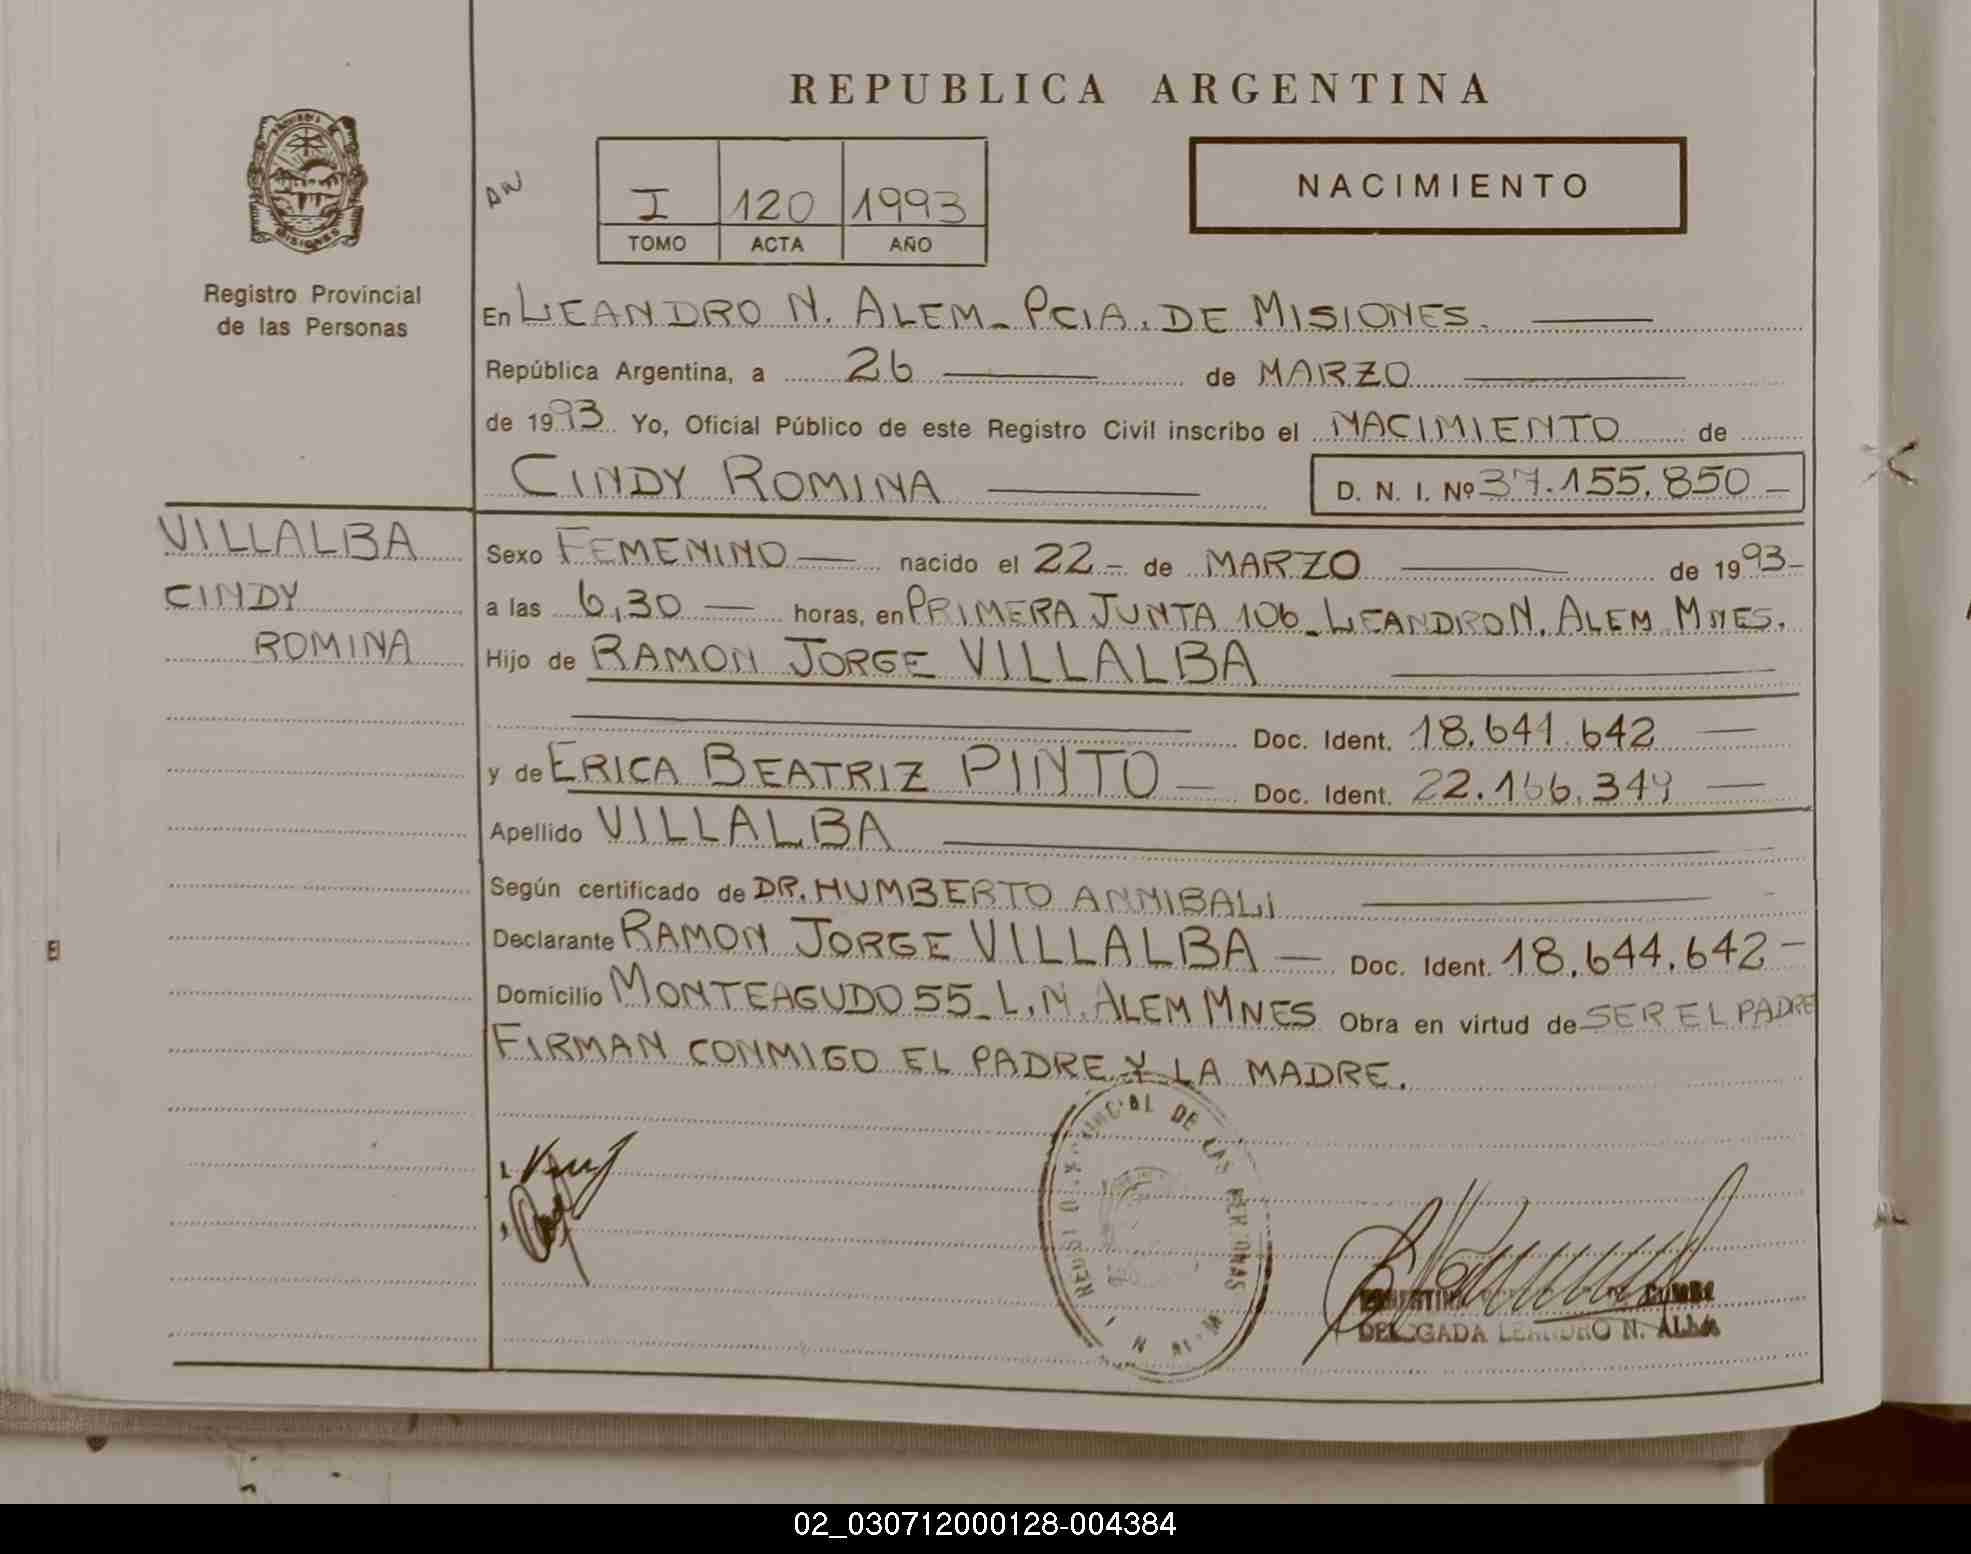 REPUBLICA ARGENTINA
MISIONES
Registro Provincial
de las Personas
I 120 1993
TOMO ACTA AÑO
NACIMIENTO
En LEANDRO N. ALEM - PCIA. DE MISIONES.
República Argentina, a 26 de MARZO
de 1993 Yo, Oficial Público de este Registro Civil inscribo el NACIMIENTO de
CINDY ROMINA D. N. I. Nº 37.155.850
VILLALBA
CINDY
ROMINA
Sexo FEMENINO nacido el 22 de MARZO de 1993
a las 6,30 horas, en PRIMERA JUNTA 106 - LEANDRO N. ALEM MNES.
Hijo de RAMON JORGE VILLALBA
Doc. Ident. 18.644.642
y de ERICA BEATRIZ PINTO Doc. Ident. 22.166.349
Apellido VILLALBA
Según certificado de DR. HUMBERTO ANNIBALI
Declarante RAMON JORGE VILLALBA Doc. Ident. 18.644.642
Domicilio MONTEAGUDO 55 - L. N. ALEM MNES Obra en virtud de SER EL PADRE
FIRMAN CONMIGO EL PADRE Y LA MADRE.
DE LAS PERSONAS
DELEGADA LEANDRO N. ALEM
02_030712000128-004384